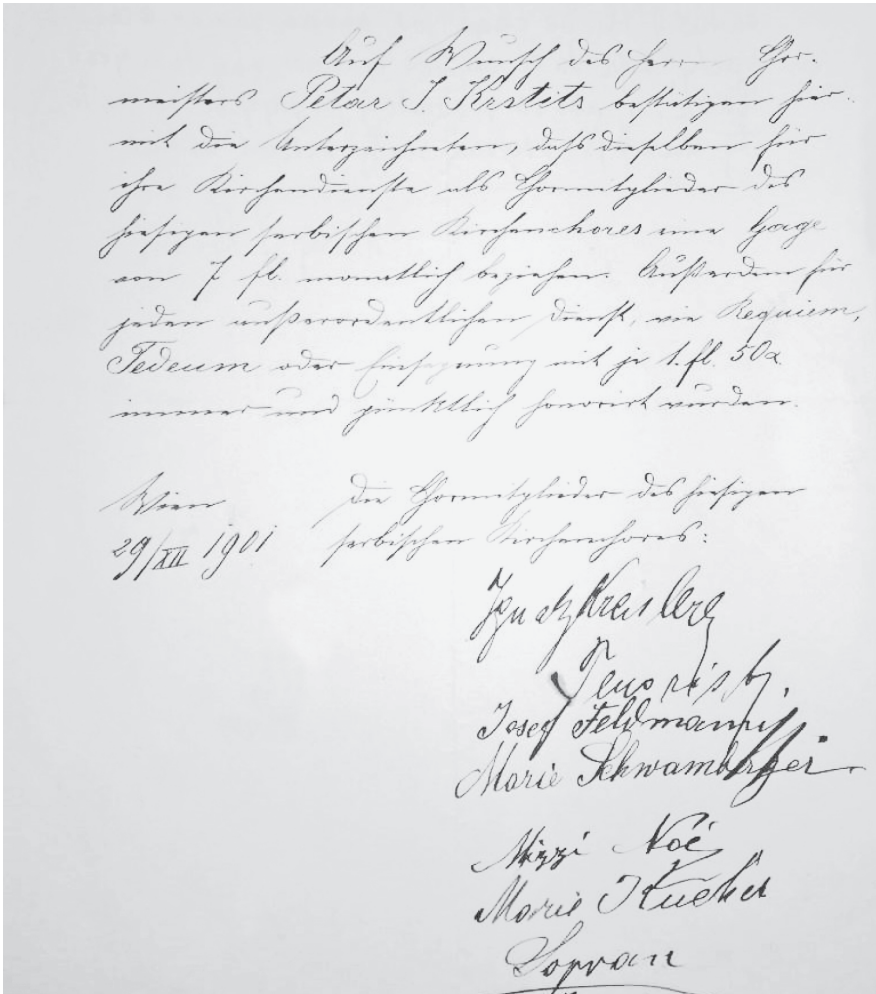 Auf Wunsch des Herrn Chor-
meisters Petar J. Krstits bestätigen hier-
mit die Unterzeichneten, daß dieselben für
ihre Kirchendienste als Chormitglieder des
hiesigen serbischen Kirchenchores eine Gage
von 7 fl. monatlich beziehen. Außerdem für
jeden außerordentlichen Dienst, wie Requiem,
Tedeum oder Einsegnung mit je 1. fl. 50
immer und pünktlich honorirt wurden.
Wien
29/XII 1901
Die Chormitglieder des hiesigen
serbischen Kirchenchores:
Ignatz
Tenorist
Josef Feldmann
Marie Schwamberger
Mizzi Noé
Marie
Sopran